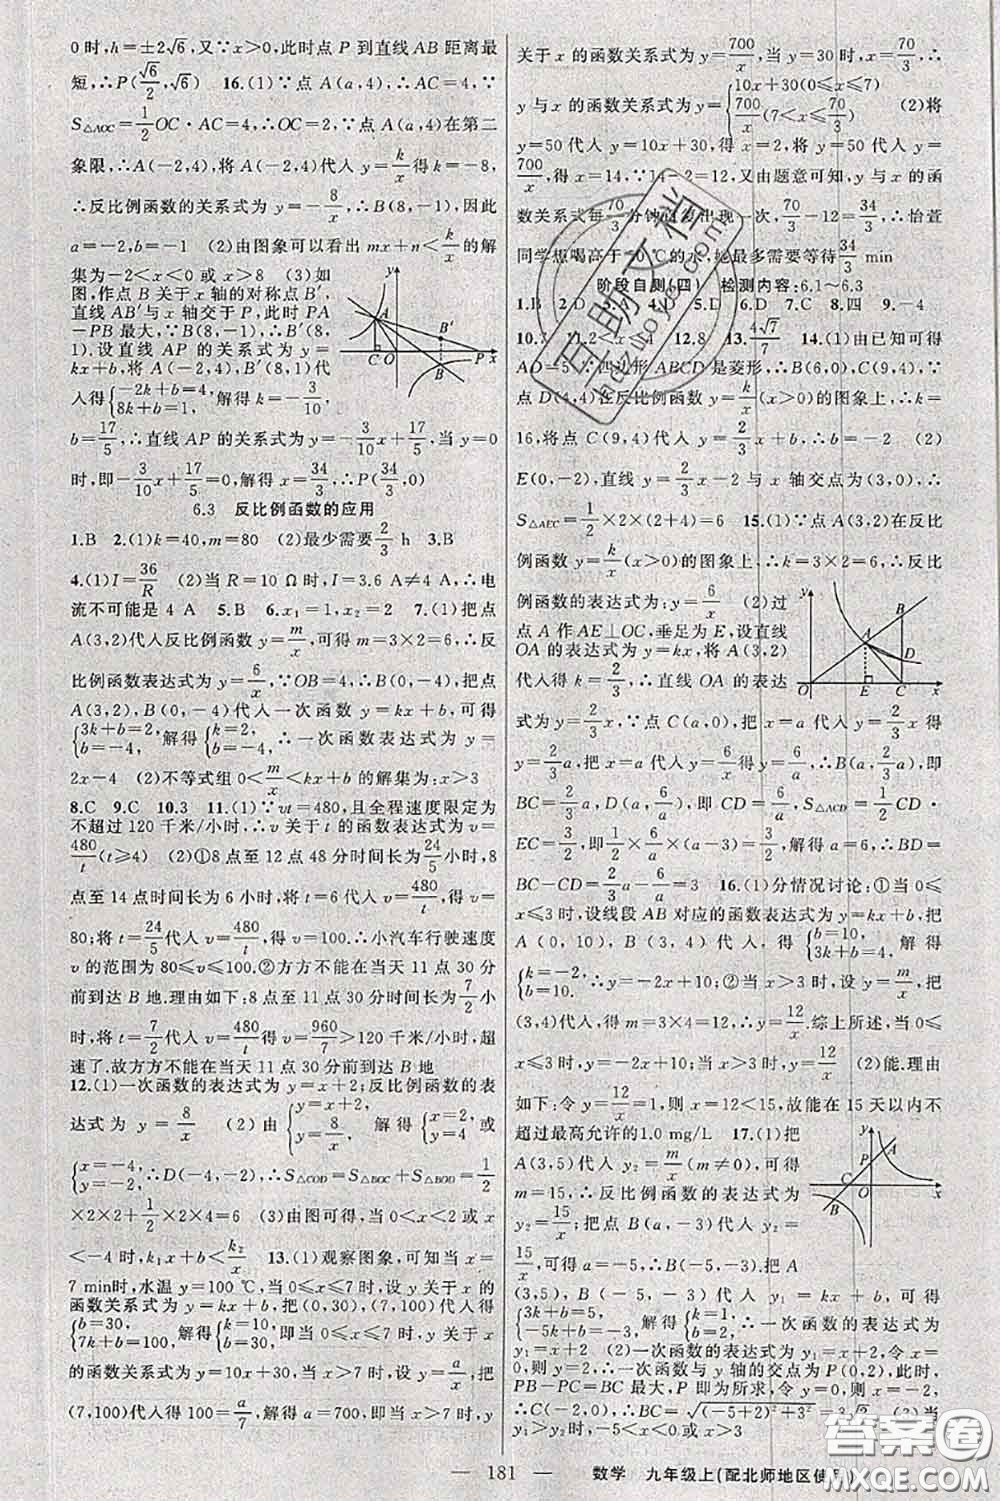 0时,h=±2√6,又∵x>0,此时点 P 到直线 AB 距离最
短,∴P(√6/2,√6)  16.(1)∵点 A(a,4),∴AC=4,∵
S△AOC=1/2 OC·AC=4,∴OC=2,∵点 A(a,4)在第二
象限,∴A(-2,4),将 A(-2,4)代入 y=k/x得 k=-8,
∴反比例函数的关系式为 y=-8/x,∴B(8,-1),因此
a=-2,b=-1  (2)由图象可以看出 mx+n<k/x的解
集为-2<x<0或 x>8  (3)如
图,作点 B 关于 x 轴的对称点 B′,
直线 AB′与 x 轴交于 P,此时 PA
-PB 最大,∵B(8,-1),∴B′(8,
1).设直线 AP 的关系式为 y=
kx+b,将 A(-2,4),B′(8,1)代
入得{-2k+b=4, 8k+b=1, 解得 k=-3/10,
b=17/5,∴直线 AP 的关系式为 y=-3/10x+17/5,当 y=0
时,即-3/10x+17/5=0,解得 x=34/3,∴P(34/3,0)
6.3 反比例函数的应用
1.B  2.(1)k=40,m=80  (2)最少需要2/3 h  3.B
4.(1)I=36/R  (2)当 R=10 Ω时,I=3.6 A≠4 A,∴电
流不可能是 4 A  5.B  6.x₁=1,x₂=2  7.(1)把点
A(3,2)代入反比例函数 y=m/x,可得 m=3×2=6,∴反
比例函数表达式为 y=6/x,∵OB=4,∴B(0,-4),把点
A(3,2),B(0,-4)代入一次函数 y=kx+b,可得
{3k+b=2, b=-4, 解得{k=2, b=-4, ∴一次函数表达式为 y=
2x-4  (2)不等式组 0<m/x<kx+b 的解集为:x>3
8.C  9.C  10.3  11.(1)∵vt=480,且全程速度限定为
不超过 120 千米/小时,∴v 关于 t 的函数表达式为 v=
480/t(t≥4)  (2)①8 点至 12 点 48 分时间长为24/5小时,8
点至 14 点时间长为 6 小时,将 t=6 代入 v=480/t得 v=
80;将 t=24/5代入 v=480/t得 v=100.∴小汽车行驶速度
v 的范围为 80≤v≤100.②方方不能在当天 11 点 30 分
前到达 B 地.理由如下:8 点至 11 点 30 分时间长为7/2小
时,将 t=7/2代入 v=480/t得 v=960/7>120 千米/小时,超
速了.故方方不能在当天 11 点 30 分前到达 B 地
12.(1)一次函数的表达式为 y=x+2;反比例函数的表
达式为 y=8/x  (2)由{y=x+2, y=8/x, 解得{x=2, y=4 或
{x=-4, y=-2, ∴D(-4,-2),∴S△COD=S△BOC+S△BOD=1/2
×2×2+1/2×2×4=6  (3)由图可得,当 0<x<2 或 x
<-4 时,k₁x+b<k₂/x  13.(1)观察图象,可知当 x=
7 min时,水温 y=100 ℃,当 0≤x≤7 时,设 y 关于 x 的
函数关系式为 y=kx+b,把(0,30),(7,100)代入得
{b=30, 7k+b=100, 解得{k=10, b=30, 即当 0≤x≤7 时,y 关于 x
的函数关系式为 y=10x+30,当 x>7 时,设 y=a/x,把
(7,100)代入得 100=a/7,解得 a=700,即当 x>7 时,y
关于 x 的函数关系式为 y=700/x,当 y=30 时,x=70/3,∴
y 与 x 的函数关系式为 y={10x+30(0≤x≤7) 700/x(7<x≤70/3)  (2)将
y=50 代入 y=10x+30,得 x=2,将 y=50 代入 y=
700/x,得 x=14,∵14-2=12,又由题意可知,y 与 x 的函
数关系式每70/3分钟重复出现一次,70/3-12=34/3,∴怡萱
同学想喝高于 50 ℃的水,她最多需要等待34/3 min
阶段自测(四) 检测内容:6.1~6.3
1.B  2.D  4.A  5.D  6.D  7.C  8.四  9.-4
12.8  13.4√7/7  14.(1)由已知可得
AD=5,∵四边形 ABCD 是菱形,∴B(6,0),C(9,4),∵
点 D(4,4)在反比例函数 y=k/x(x>0)的图象上,∴k=
16,将点 C(9,4)代入 y=2/3x+b,∴b=-2  (2)
E(0,-2),直线 y=2/3x-2 与 x 轴交点为(3,0),∴
S△AEC=1/2×2×(2+4)=6  15.(1)∵点 A(3,2)在反比
例函数 y=k/x(x>0)的图象上,∴k=3×2=6,∴反比
例函数的表达式为:y=6/x  (2)过
点 A 作 AE⊥OC,垂足为 E,设直线
OA 的表达式为 y=kx,将 A(3,2)
代入得 k=2/3,∴直线 OA 的表达
式为 y=2/3x,∵点 C(a,0),把 x=a 代入 y=2/3x 得
y=2/3a,把 x=a 代入 y=6/x得 y=6/a,∴B(a,2/3a),即
BC=2/3a,D(a,6/a),即 CD=6/a,∵S△ACD=1/2CD·
EC=3/2,即1/2×6/a×(a-3)=3/2,解得 a=6,∴BD=
BC-CD=2/3a-6/a=3  16.(1)分情况讨论:①当 0≤
x≤3 时,设线段 AB 对应的函数表达式为 y=kx+b,把
A(0,10),B(3,4)代入,得{b=10, 3k+b=4, 解得
{k=-2, b=10. ∴y=-2x+10;②当 x>3 时,设 y=m/x,把
(3,4)代入,得 m=3×4=12,∴y=12/x.综上所述,当 0≤
x≤3 时,y=-2x+10;当 x>3 时,y=12/x  (2)能.理由
如下:令 y=12/x=1,则 x=12<15,故能在 15 天以内不
超过最高允许的1.0 mg/L  17.(1)把
A(3,5)代入 y₂=m/x(m≠0),可得
m=15,∴反比例函数的表达式为
y₂=15/x;把点 B(a,-3)代入 y₂=
15/x,可得 a=-5,∴B(-5,-3).把 A
(3,5),B(-5,-3)代入 y₁=kx+b,可得
{3k+b=5, -5k+b=-3, 解得{k=1, b=2, ∴一次函数的表达式为
y₁=x+2  (2)一次函数的表达式为 y₁=x+2,令 x=
0,则 y=2,∴一次函数与 y 轴的交点为 P(0,2),此时,
PB-PC=BC 最大,P 即为所求,令 y=0,则 x=-2,
∴C(-2,0),∴BC=√((-5+2)²+3²)=3√2  (3)当
y₁>y₂时,-5<x<0 或 x>3
181
数学 九年级上(配北师地区使用)
答案圈
MXQE.COM